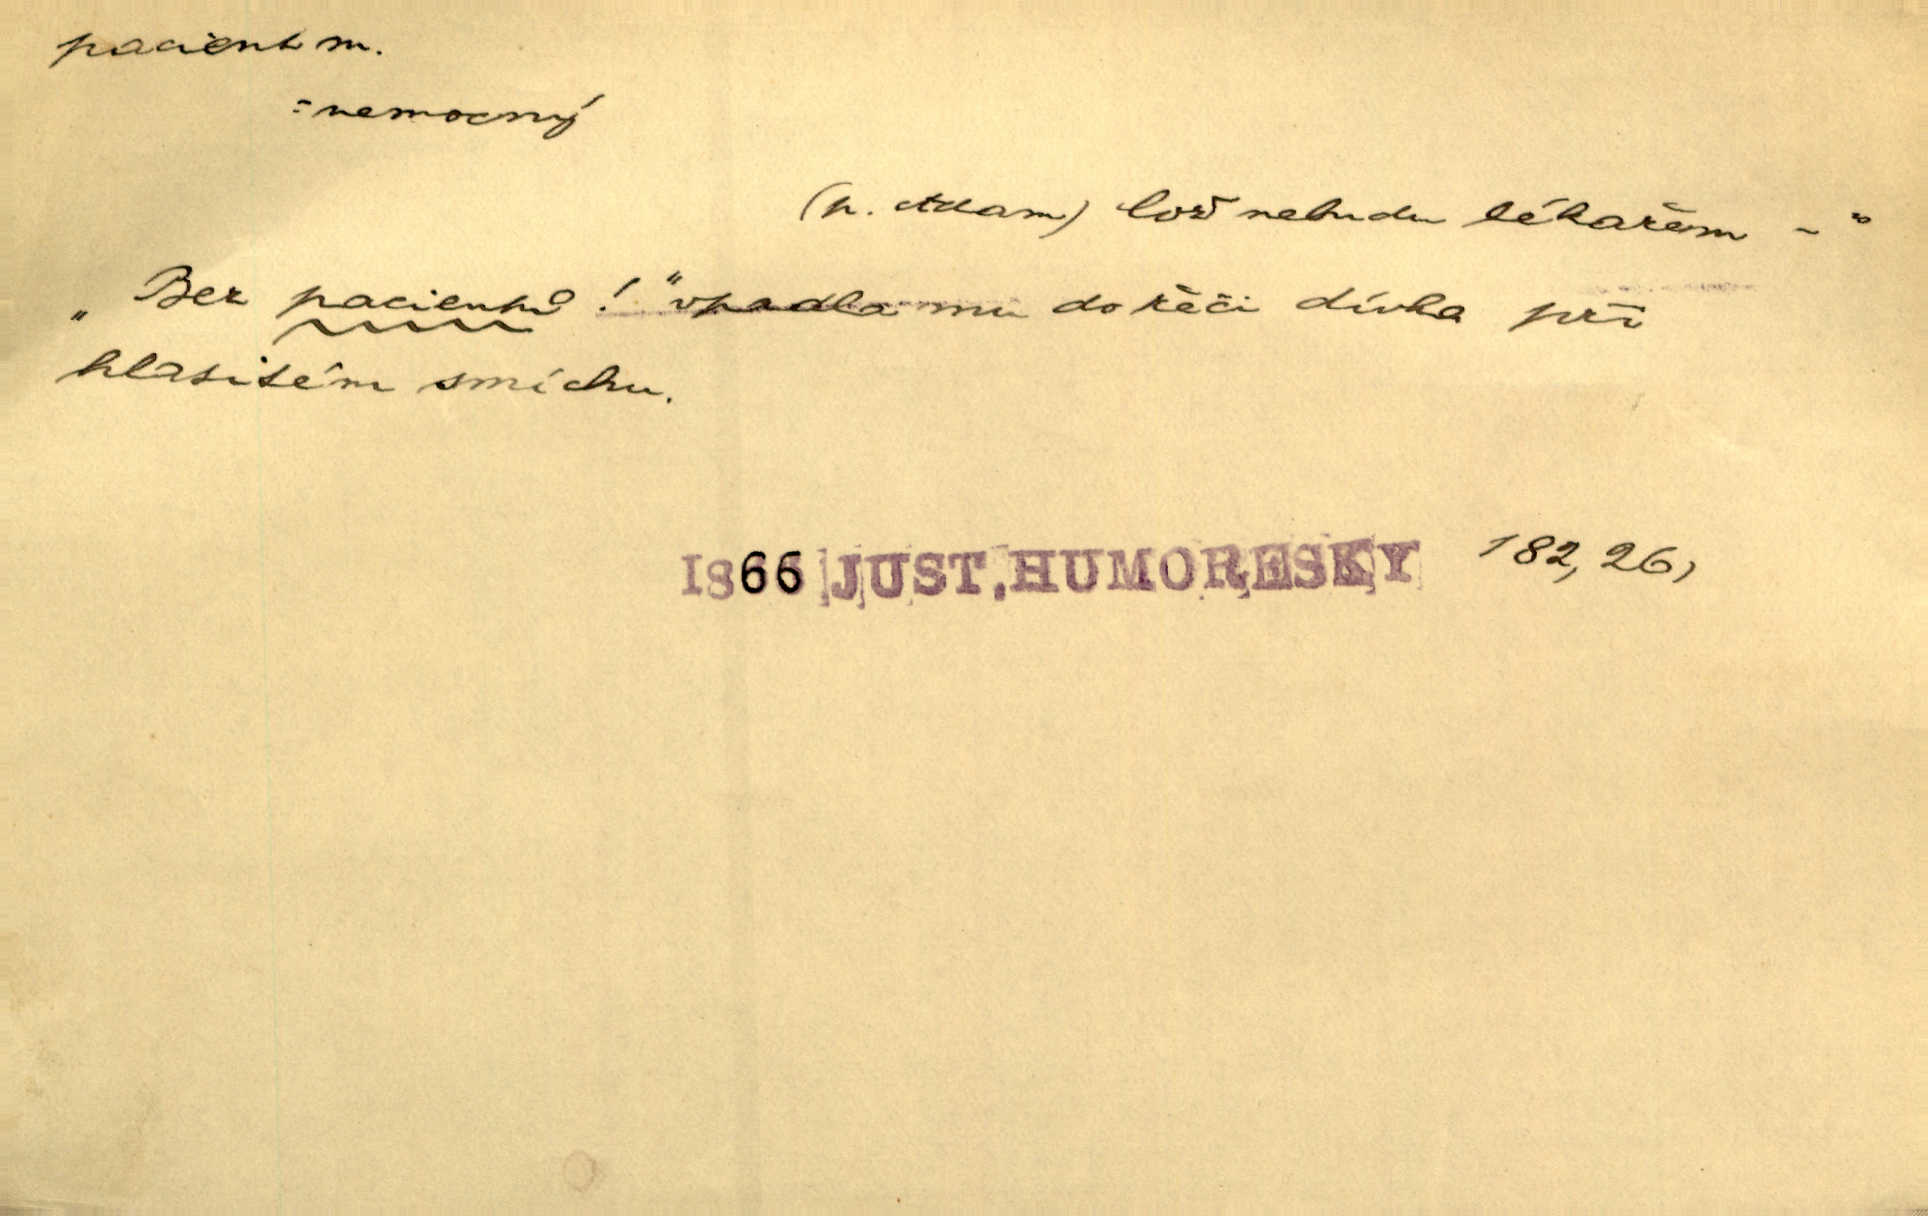 pacient m.
= nemocný
(p. Adam) Což nebudu lékařem – "
„ Bez pacientů ! " vpadla mu do řeči dívka při
hlasitém smíchu.
1866 JUST. HUMORESKY 182, 26,